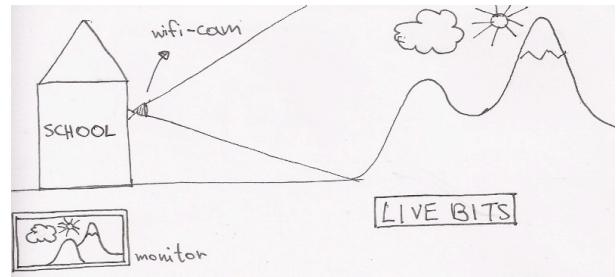 wifi-cam
SCHOOL
LIVE BITS
monitor